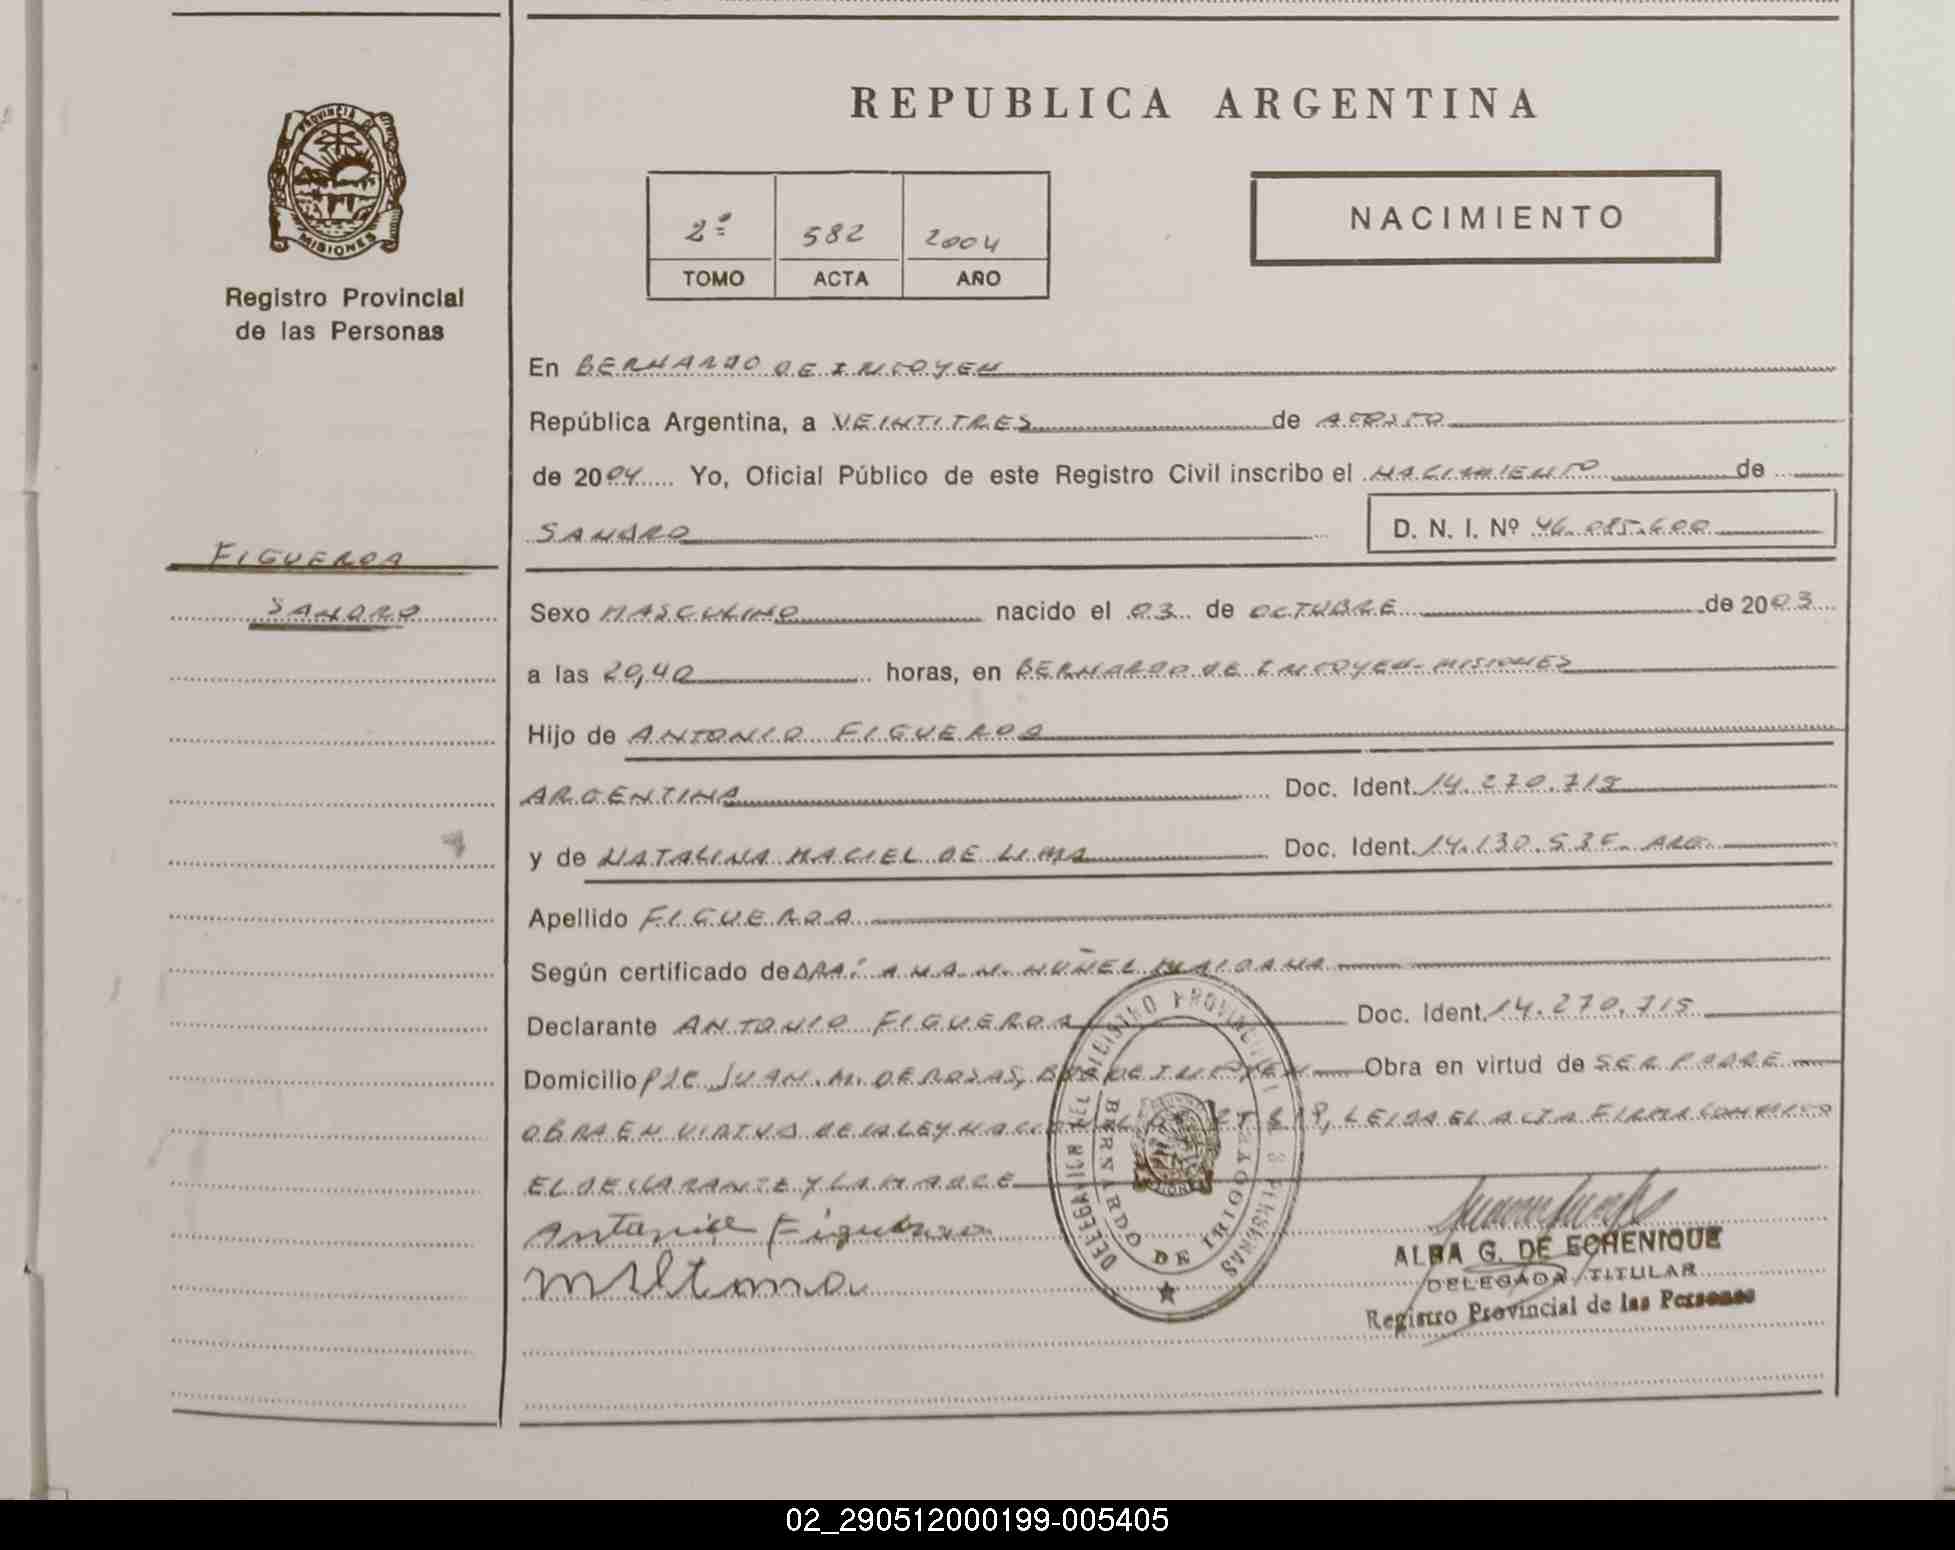 REPUBLICA ARGENTINA
PROVINCIA DE
MISIONES
Registro Provincial
de las Personas
2º 582 2004
TOMO ACTA AÑO
NACIMIENTO
En BERNARDO DE IRIGOYEN
República Argentina, a VEINTITRES de AGOSTO
de 2004 Yo, Oficial Público de este Registro Civil inscribo el NACIMIENTO de
SANDRO D. N. I. Nº 46.085.600
FIGUEROA
SANDRO
Sexo MASCULINO nacido el 03 de OCTUBRE de 2003
a las 20,40 horas, en BERNARDO DE IRIGOYEN-MISIONES
Hijo de ANTONIO FIGUEROA
ARGENTINA Doc. Ident. 14.270.715
y de NATALINA MACIEL DE LIMA Doc. Ident. 14.130.535. ARG.
Apellido FIGUEROA
Según certificado de DRA: ANA. N. NUÑEZ MAIDANA
Declarante ANTONIO FIGUEROA Doc. Ident. 14.270.715
Domicilio JUAN. M. DE ROSAS, BDO DE IRIGOYEN Obra en virtud de SER PADRE
OBRA EN VIRTUD DE LA LEY NACIONAL LEIDA EL ACTA FIRMA CONMIGO
EL DECLARANTE Y LA MADRE
Antonio Figueroa
DELEGACION DEL REGISTRO PROVINCIAL DE LAS PERSONAS
BERNARDO DE IRIGOYEN
ALBA G. DE ECHENIQUE
DELEGADA TITULAR
Registro Provincial de las Personas
02_290512000199-005405